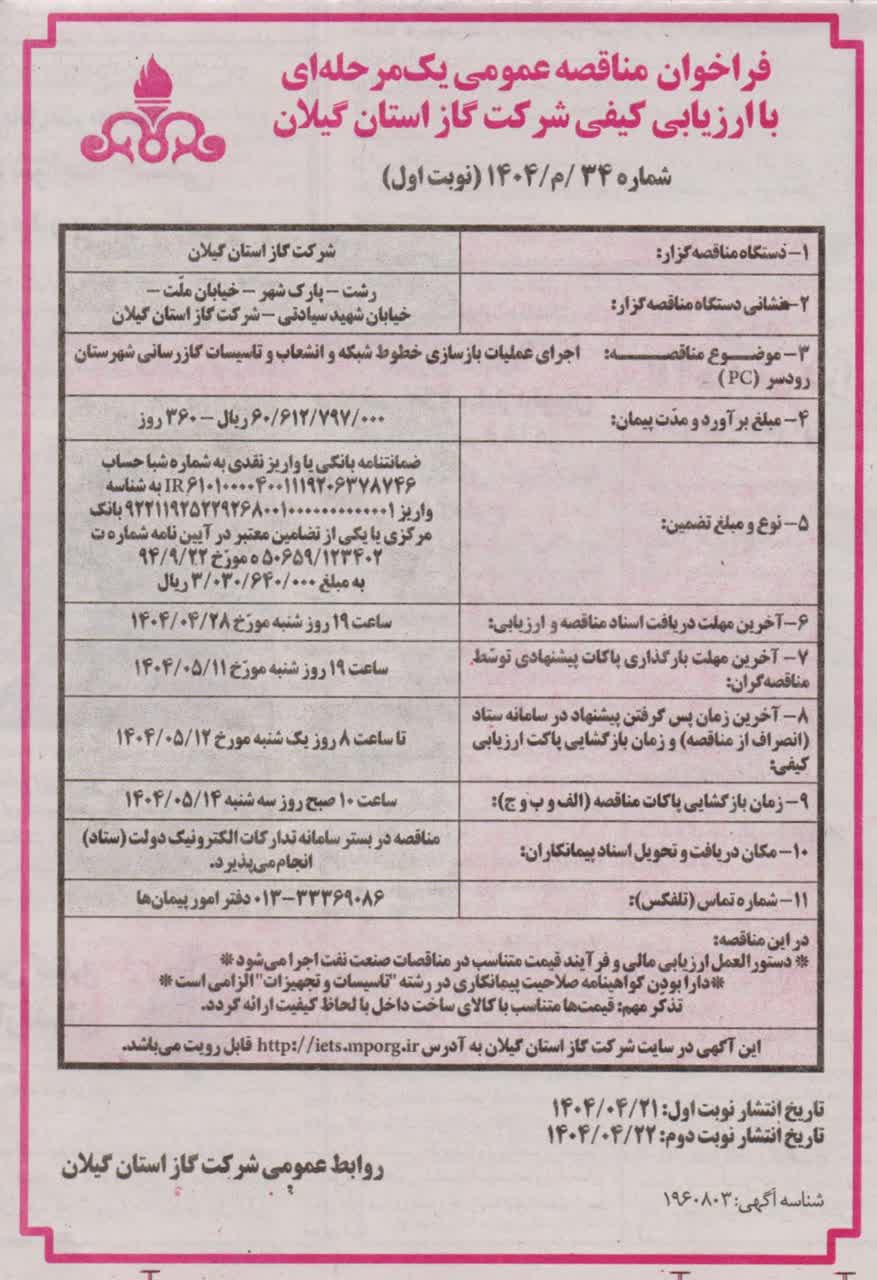 فراخوان مناقصه عمومی یک‌مرحله‌ای
با ارزیابی کیفی شرکت گاز استان گیلان
شماره ۳۴ /م/۱۴۰۴ (نوبت اول)
۱- دستگاه مناقصه‌گزار:
شرکت گاز استان گیلان
۲- نشانی دستگاه مناقصه‌گزار:
رشت – پارک شهر – خیابان ملّت –
خیابان شهید سیادتی – شرکت گاز استان گیلان
۳- موضوع مناقصه: اجرای عملیات بازسازی خطوط شبکه و انشعاب و تاسیسات گازرسانی شهرستان
رودسر (PC)
۴- مبلغ برآورد و مدّت پیمان:
۶۰/۶۱۲/۷۹۷/۰۰۰ ریال – ۳۶۰ روز
۵- نوع و مبلغ تضمین:
ضمانتنامه بانکی یا واریز نقدی به شماره شبا حساب
IR۶۱۰۱۰۰۰۰۴۰۰۱۱۱۹۲۰۶۳۷۸۷۴۶ به شناسه
واریز ۹۲۲۱۱۹۲۵۲۲۹۲۶۸۰۰۱۰۰۰۰۰۰۰۰۰۰۰۰۱ بانک
مرکزی یا یکی از تضامین معتبر در آیین نامه شماره ت
۵۰۶۵۹/۱۲۳۴۰۲ ه مورّخ ۹۴/۹/۲۲
به مبلغ ۳/۰۳۰/۶۴۰/۰۰۰ ریال
۶- آخرین مهلت دریافت اسناد مناقصه و ارزیابی:
ساعت ۱۹ روز شنبه مورّخ ۱۴۰۴/۰۴/۲۸
۷- آخرین مهلت بارگذاری پاکات پیشنهادی توسّط
مناقصه‌گران:
ساعت ۱۹ روز شنبه مورّخ ۱۴۰۴/۰۵/۱۱
۸- آخرین زمان پس گرفتن پیشنهاد در سامانه ستاد
(انصراف از مناقصه) و زمان بازگشایی پاکت ارزیابی
کیفی:
تا ساعت ۸ روز یک شنبه مورخ ۱۴۰۴/۰۵/۱۲
۹- زمان بازگشایی پاکات مناقصه (الف و ب و ج):
ساعت ۱۰ صبح روز سه شنبه ۱۴۰۴/۰۵/۱۴
۱۰- مکان دریافت و تحویل اسناد پیمانکاران:
مناقصه در بستر سامانه تدارکات الکترونیک دولت (ستاد)
انجام می‌پذیرد.
۱۱- شماره تماس (تلفکس):
۰۱۳-۳۳۳۶۹۰۸۶ دفتر امور پیمان‌ها
در این مناقصه:
* دستورالعمل ارزیابی مالی و فرآیند قیمت متناسب در مناقصات صنعت نفت اجرا می‌شود *
*دارا بودن گواهینامه صلاحیت پیمانکاری در رشته "تاسیسات و تجهیزات" الزامی است *
تذکر مهم: قیمت‌ها متناسب با کالای ساخت داخل با لحاظ کیفیت ارائه گردد.
این آگهی در سایت شرکت گاز استان گیلان به آدرس http://iets.mporg.ir قابل رویت می‌باشد.
تاریخ انتشار نوبت اول: ۱۴۰۴/۰۴/۲۱
تاریخ انتشار نوبت دوم: ۱۴۰۴/۰۴/۲۲
روابط عمومی شرکت گاز استان گیلان
شناسه آگهی: ۱۹۶۰۸۰۳